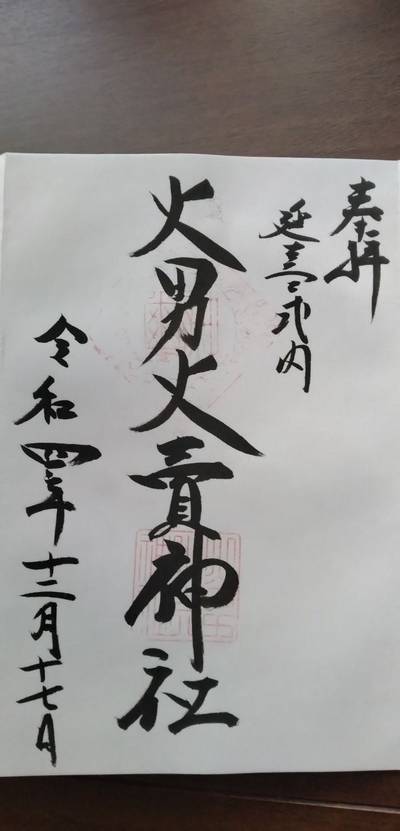 奉拝
延喜式内
火男火賣神社
令和四年十二月十七日